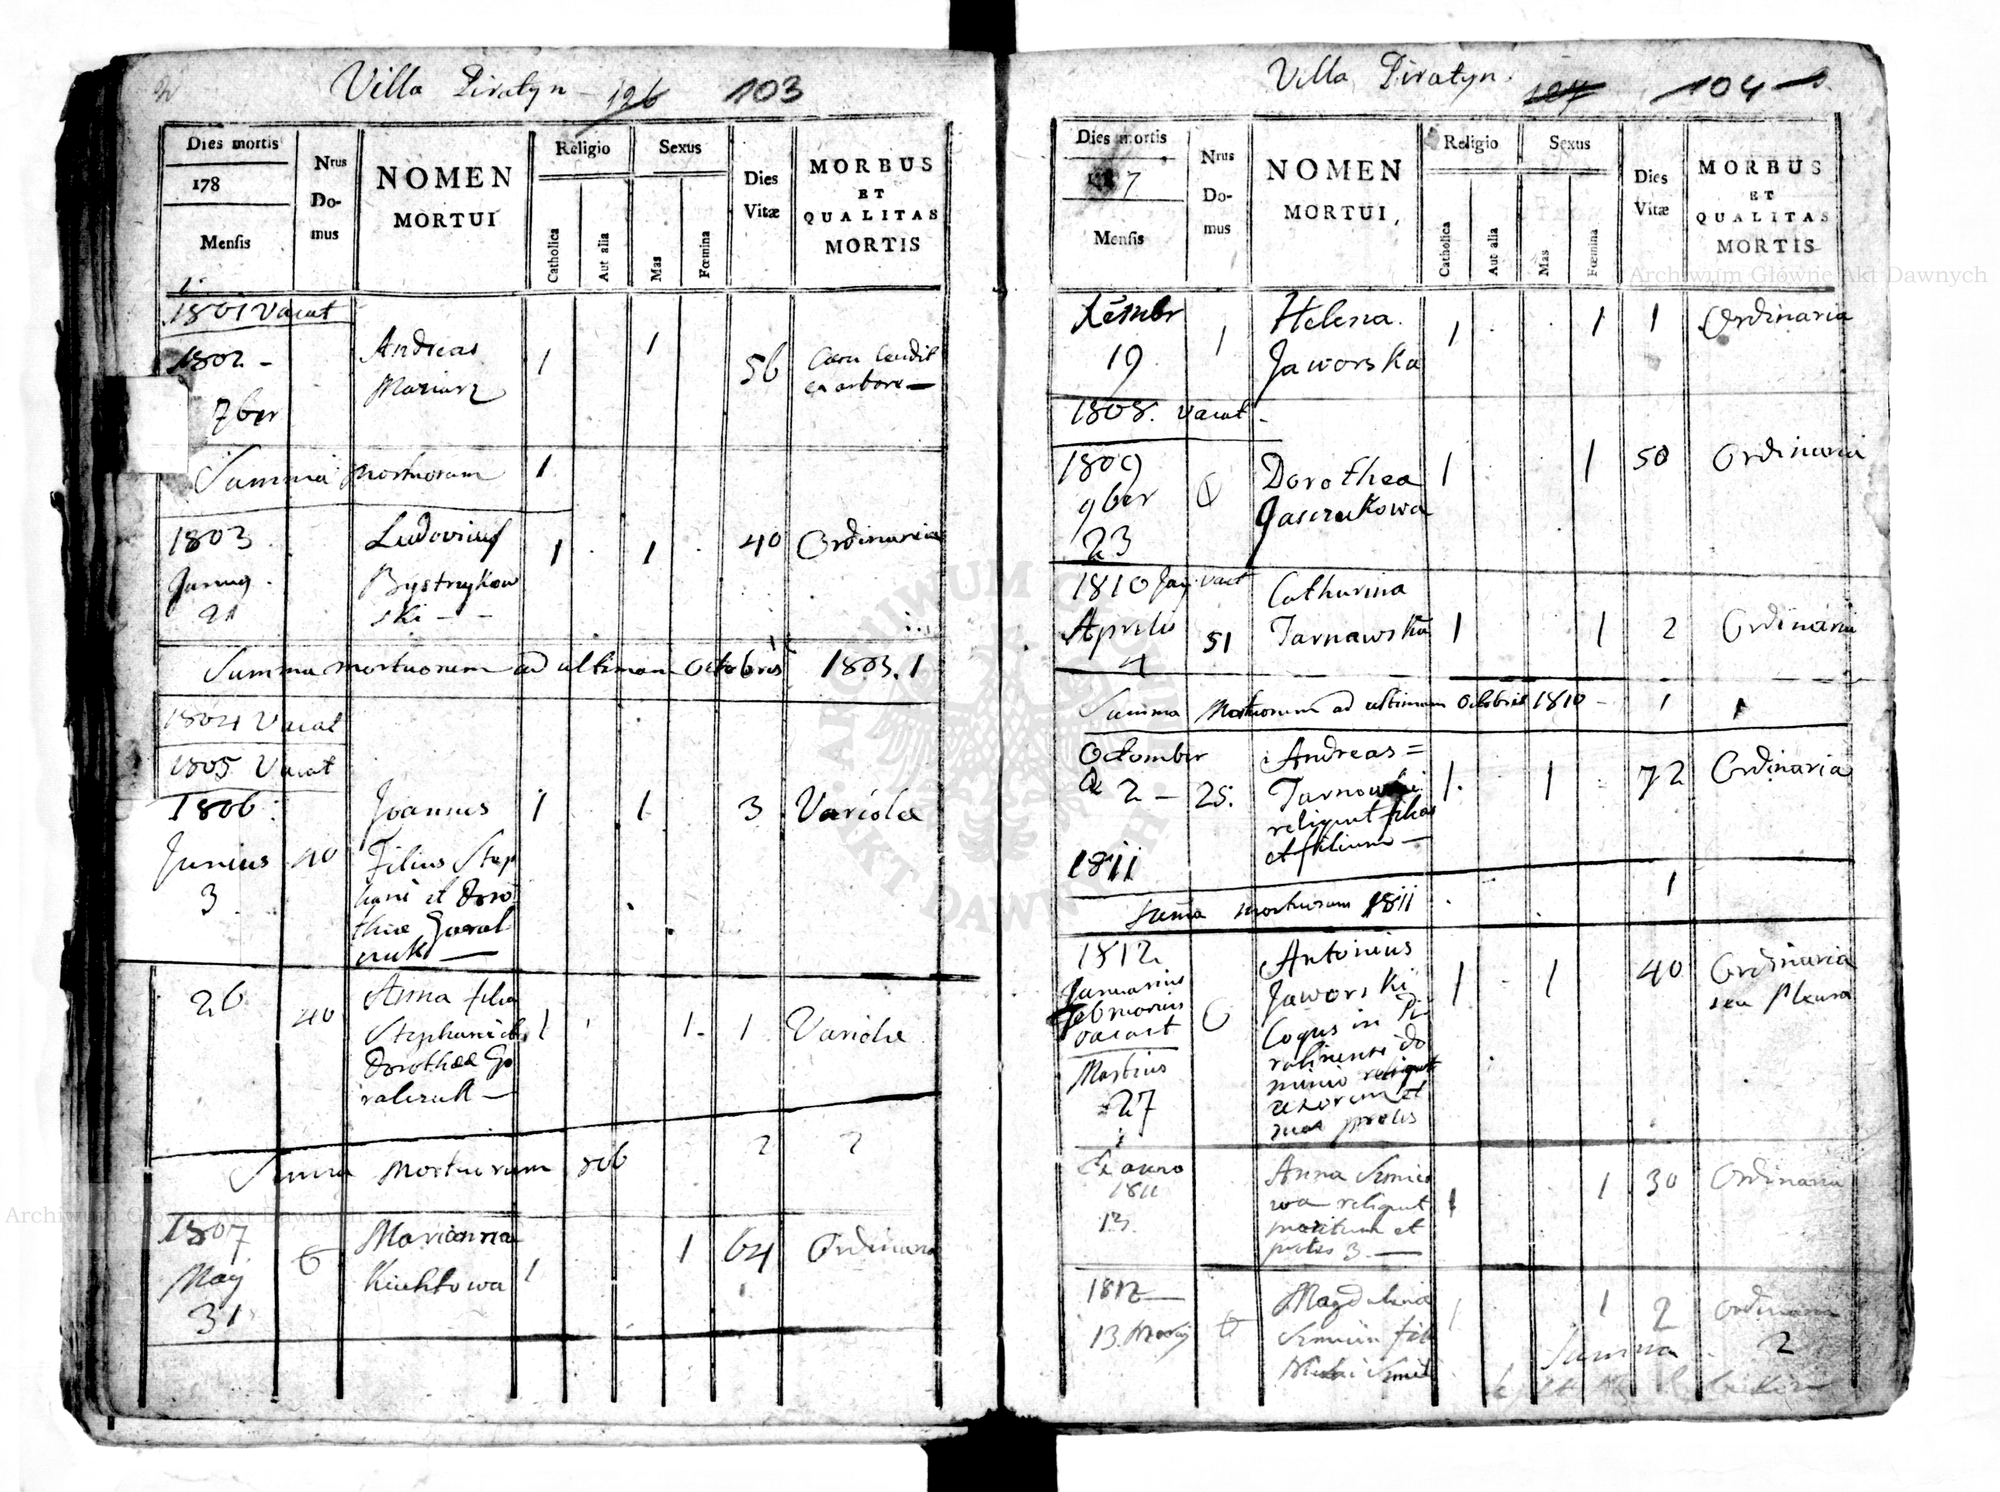 Villa Piratyn 126 103
Dies mortis
178
Mensis
Nrus
Do-
mus
NOMEN
MORTUI
Religio
Catholica
Aut alia
Sexus
Mas
Fœmina
Dies
Vitæ
MORBUS
ET
QUALITAS
MORTIS
1801 Vacat
1802 - Andreas 1 1 56
Mariarz ex arbore
7ber
Summa mortuorum 1
1803 Ludovicus 1 1 40 Ordinaria
21 Bystrzykow
ski
Summa mortuorum ad ultimam Octobris 1803. 1
1804 Vacat
1805 Vacat
1806 Joannes 1 1 3 Variolæ
Junius 40 Filius Step
3 hani et Doro
theæ
26 40 Anna filia 1 1 1 Variolæ
Stephani et
Dorotheæ Go
ralczuk
Summa Mortuorum 806 2 2
1807 6 Marianna 1 1 64 Ordinaria
May
31
Villa Piratyn 127 104
Dies mortis
7
Mensis
Nrus
Do-
mus
NOMEN
MORTUI,
Religio
Catholica
Aut alia
Sexus
Mas
Fœmina
Dies
Vitæ
MORBUS
ET
QUALITAS
MORTIS
Xembr 1 Helena 1 1 1 Ordinaria
19 Jaworska
1808. vacat
1809 Dorothea 1 1 50 Ordinaria
9ber Jasczukowa
23
1810 vacat Catharina
Aprilis 51 Tarnawska 1 1 2 Ordinaria
4
Summa Mortuorum ad ultimam Octobris 1810 - 1
Octomber Andreas =
2 - 25. 1. 1 72 Ordinaria
reliquit filias
et filium
1811
Suma mortuorum 1811 1
1812 Antonius 1 1 40 Ordinaria
Januarius Jaworski seu Pleura
Februarius 6 Coqus in Pi
vacant ratinensi do
Martius minio reliquit
27 uxorem et
proles
anno Anna 1 1 30 Ordinaria
1811 reliquit
13. maritum et
proles 3.
1812 Magdalena 1 1 2 Ordinaria
13. 6
Summa 2
Archiwum Główne Akt Dawnych
Archiwum Główne Akt Dawnych
ARCHIWUM GŁÓWNE AKT DAWNYCH